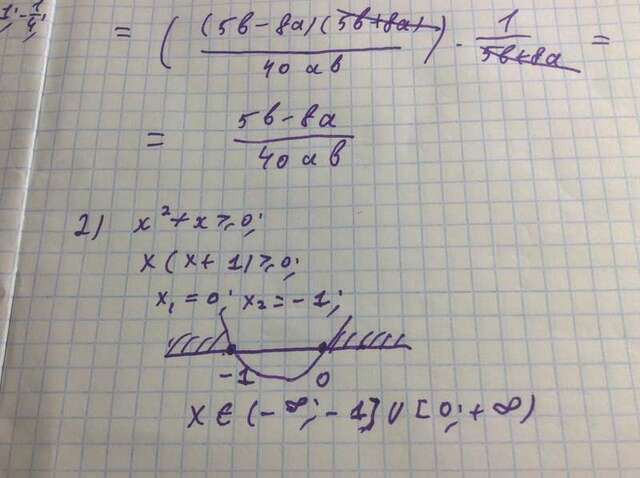 1; -1/4;
= ( (5b-8a)(5b+8a) / 40ab ) · 1 / 5b+8a =
= 5b-8a / 40ab
2) x²+x≥0;
x(x+1)≥0;
x₁=0; x₂=-1;
-1 0
x∈(-∞;-1]∪[0;+∞)